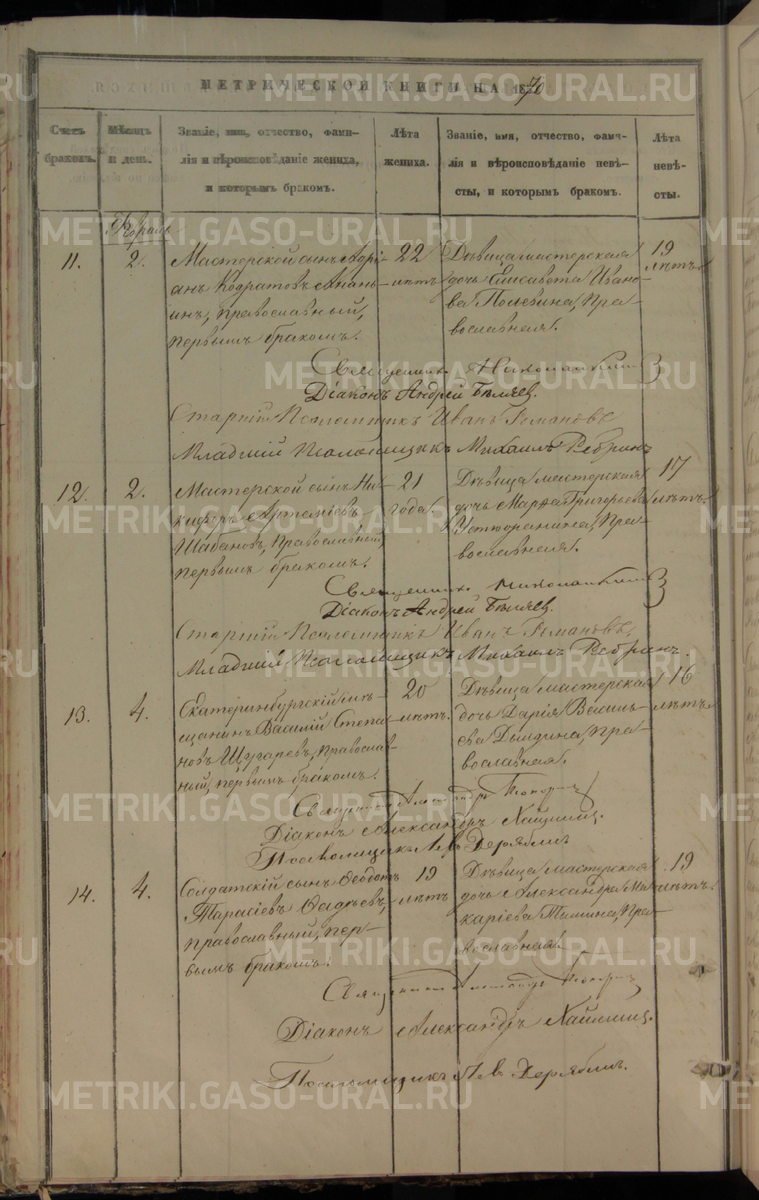 МЕТРИЧЕСКОЙ КНИГИ НА 1870
Счетъ браковъ.
Мѣсяцъ и день.
Званіе, имя, отчество, фами-
лія и вѣроисповѣданіе жениха,
и которымъ бракомъ.
Лѣта жениха.
Званіе, имя, отчество, фами-
лія и вѣроисповѣданіе невѣ-
сты, и которымъ бракомъ.
Лѣта невѣ-
сты.
Февраль
11. 2.
Мастерской сынъ Адрі-
анъ Кодратовъ Анань-
инъ, православный,
первымъ бракомъ.
22
лѣтъ
Дѣвица мастерская
дочь Елисавета Ивано-
ва Полевина, Пра-
вославная.
19
лѣтъ.
Священникъ
Діаконъ Андрей Бѣляев.
Старшій Псаломщикъ Иванъ Романовъ
Младшій Псаломщикъ Михаилъ Ребринъ
12. 2.
Мастерской сынъ Ни-
кифоръ Артеміевъ
Шабановъ, Православный,
первымъ бракомъ.
21
года.
Дѣвица мастерская
дочь Марѳа Григорьева
Устюжанина, Пра-
вославная.
17
лѣтъ.
Священникъ
Діаконъ Андрей Бѣляев.
Старшій Псаломщикъ Иванъ Романовъ,
Младшій Псаломщикъ Михаилъ Ребринъ.
13. 4.
Екатеринбургскій мѣ-
щанинъ Василій Степа-
новъ Щугаревъ, Православ-
ный, первымъ бракомъ.
20
лѣтъ.
Дѣвица мастерская
дочь Дарія Василь-
ева Дылдина, Пра-
вославная.
16
лѣтъ.
Священникъ Александръ
Діаконъ Александръ
Псаломщикъ Левъ Дерябинъ
14. 4.
Солдатскій сынъ Ѳеодотъ
Тарасіевъ Ѳадѣевъ,
православный, пер-
вымъ бракомъ.
19
лѣтъ
Дѣвица мастерская
дочь Александра Ма-
каріева Тимина, Пра-
вославная.
19
лѣтъ.
Священникъ Александръ
Діаконъ Александръ
Псаломщикъ Левъ Дерябинъ.
METRIKI.GASO-URAL.RU